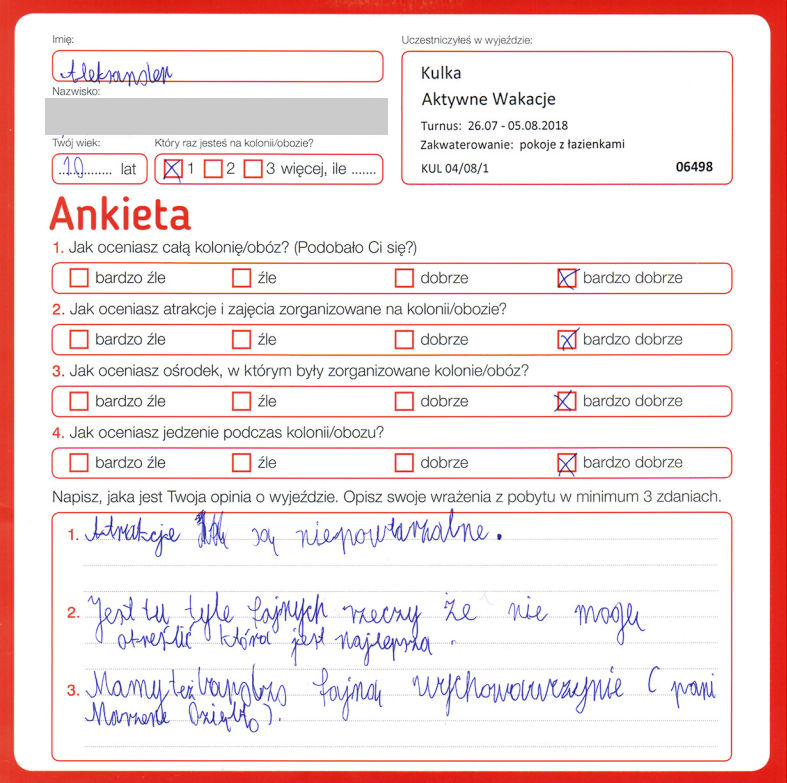 Imię:
Aleksander
Uczestniczyłeś w wyjeździe:
Kulka
Aktywne Wakacje
Turnus: 26.07 - 05.08.2018
Zakwaterowanie: pokoje z łazienkami
KUL 04/08/1 06498
Nazwisko:
Twój wiek:
10 lat
Który raz jesteś na kolonii/obozie?
1 2 3 więcej, ile .......
Ankieta
1. Jak oceniasz całą kolonię/obóz? (Podobało Ci się?)
bardzo źle źle dobrze bardzo dobrze
2. Jak oceniasz atrakcje i zajęcia zorganizowane na kolonii/obozie?
bardzo źle źle dobrze bardzo dobrze
3. Jak oceniasz ośrodek, w którym były zorganizowane kolonie/obóz?
bardzo źle źle dobrze bardzo dobrze
4. Jak oceniasz jedzenie podczas kolonii/obozu?
bardzo źle źle dobrze bardzo dobrze
Napisz, jaka jest Twoja opinia o wyjeździe. Opisz swoje wrażenia z pobytu w minimum 3 zdaniach.
1. Atrakcje są niepowtarzalne.
2. Jest tu tyle fajnych rzeczy że nie mogę
określić która jest najlepsza.
3. Mamy też bardzo fajną wychowawczynię (pani
Marzenę).